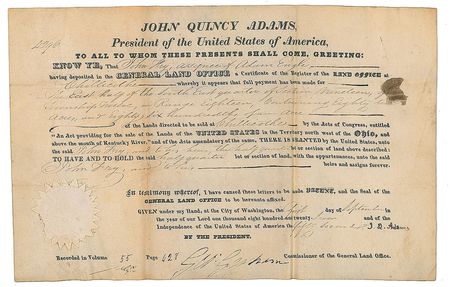 JOHN QUINCY ADAMS,
President of the United States of America,
TO ALL TO WHOM THESE PRESENTS SHALL COME, GREETING:
KNOW YE, That John Fry, assignee of Adam
having deposited in the GENERAL LAND OFFICE a Certificate of the Register of the LAND OFFICE at
Chillicothe whereby it appears that full payment has been made for
East half of the quarter of Section
Township Range eighteen, Containing Eighty
acres, and
of the Lands directed to be sold at Chillicothe by the Acts of Congress, entitled
"An Act providing for the sale of the Lands of the UNITED STATES in the Territory north west of the Ohio, and
above the mouth of Kentucky River," and of the Acts amendatory of the same, THERE IS GRANTED by the United States, unto
the said John Fry lot or section of land above described:
TO HAVE AND TO HOLD the said half quarter lot or section of land, with the appurtenances, unto the said
John Fry, heirs and assigns forever.
In testimony whereof, I have caused these letters to be made PATENT, and the Seal of the
GENERAL LAND OFFICE to be hereunto affixed.
GIVEN under my Hand, at the City of Washington, the first day of September in
the year of our Lord one thousand eight hundred and twenty and of the
Independence of the United States of America the fifty J. Q. Adams
BY THE PRESIDENT.
Commissioner of the General Land Office.
Recorded in Volume 55 Page 428